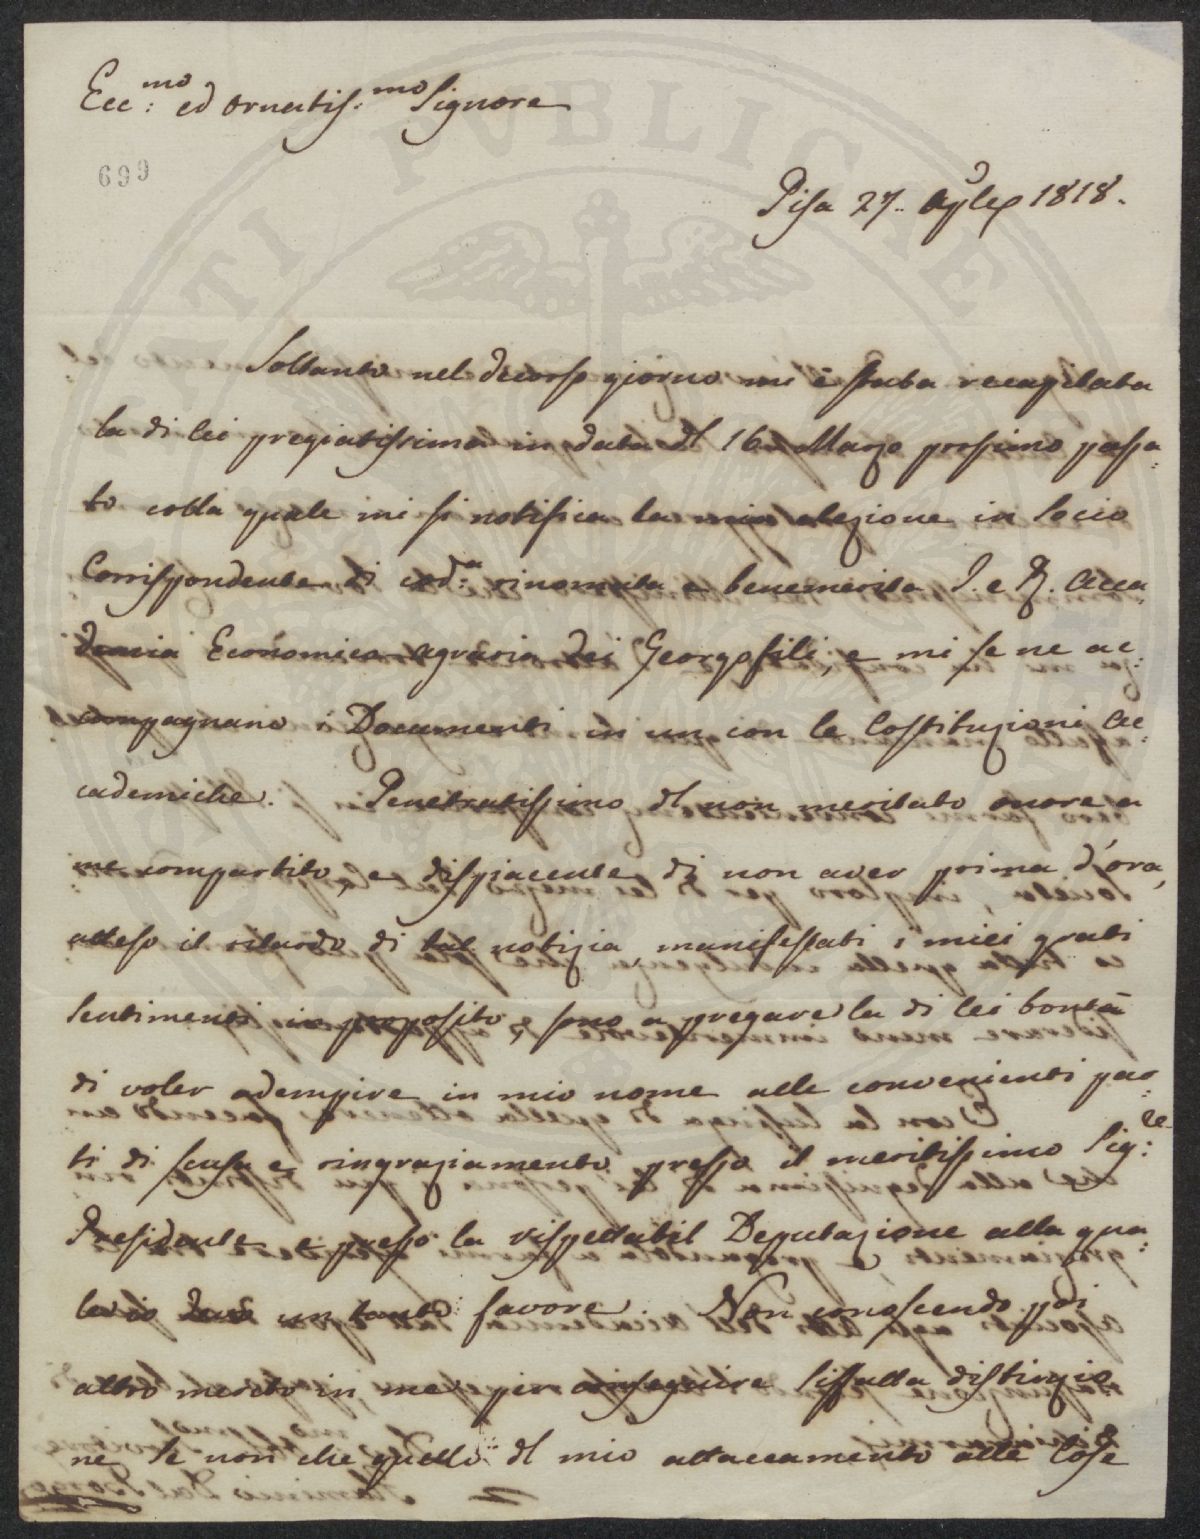 Ecc:mo ed ornatis:mo Signore
699
Pisa 27. Aple 1818.
Soltanto nel decorso giorno mi è stata recapitata
la di lei pregiatissima in data dl 16 Marzo prossimo passa:
to colla quale mi si notifica la mia elezione in Socio
Corrispondente di cod:a rinomata e benemerita I. e R. Acca:
demia Economico agraria dei Georgofili, e mi se ne ac:
compagnano i Documenti in un con le Costituzioni Ac:
cademiche. Penetratissimo dl non meritato onore a
me compartito, e dispiacente di non aver prima d'ora,
atteso il ritardo di tal notizia manifestati i miei grati
sentimenti in proposito, sono a pregare la di lei bontà
di voler adempire in mio nome alle convenienti par:
ti di scusa e ringraziamento presso il meritissimo Sig:re
Presidente e presso la rispettabil Deputazione alla qua:
le io devo un tanto favore. Non conoscendo poi
altro merito in me per conseguire siffatta distinzio
ne se non che quello dl mio attaccamento alle Cose